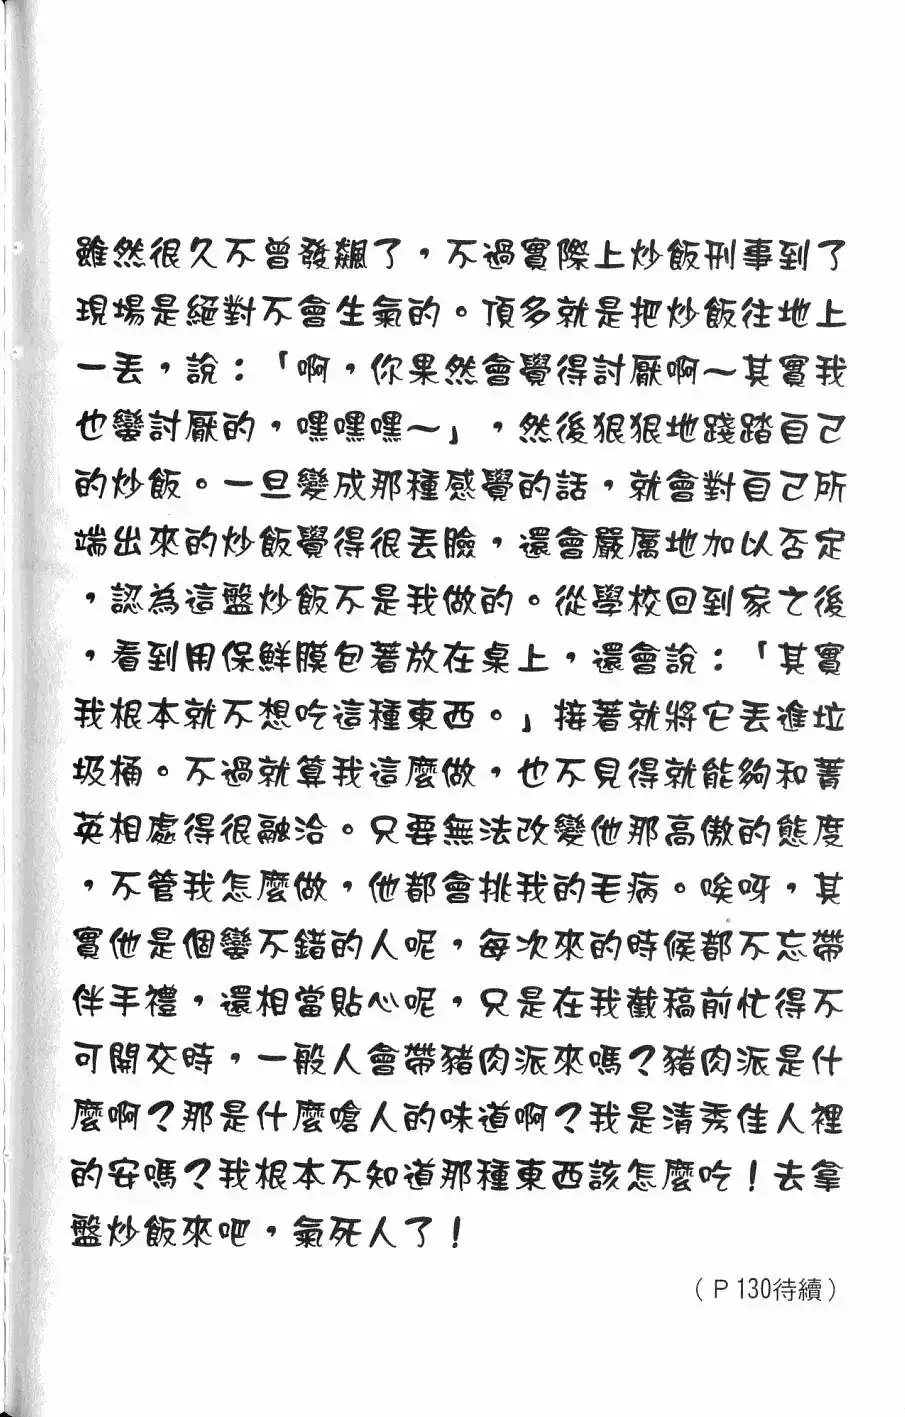 雖然很久不曾發飆了，不過實際上炒飯刑事到了
現場是絕對不會生氣的。頂多就是把炒飯往地上
一丟，說：「啊，你果然會覺得討厭啊～其實我
也蠻討厭的，嘿嘿嘿～」，然後狠狠地踐踏自己
的炒飯。一旦變成那種感覺的話，就會對自己所
端出來的炒飯覺得很丟臉，還會嚴厲地加以否定
，認為這盤炒飯不是我做的。從學校回到家之後
，看到用保鮮膜包著放在桌上，還會說：「其實
我根本就不想吃這種東西。」接著就將它丟進垃
圾桶。不過就算我這麼做，也不見得就能夠和菁
英相處得很融洽。只要無法改變他那高傲的態度
，不管我怎麼做，他都會挑我的毛病。唉呀，其
實他是個蠻不錯的人呢，每次來的時候都不忘帶
伴手禮，還相當貼心呢，只是在我截稿前忙得不
可開交時，一般人會帶豬肉派來嗎？豬肉派是什
麼啊？那是什麼嗆人的味道啊？我是清秀佳人裡
的安嗎？我根本不知道那種東西該怎麼吃！去拿
盤炒飯來吧，氣死人了！
（P130待續）